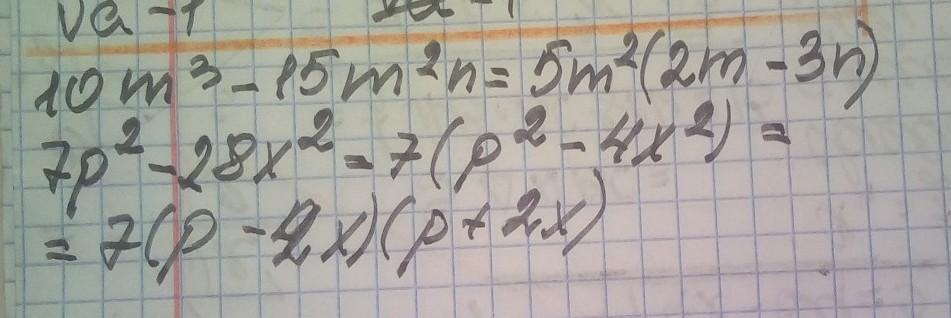 √a - 1
10m³ - 15m²n = 5m²(2m - 3n)
7p² - 28x² = 7(p² - 4x²) =
= 7(p - 2x)(p + 2x)